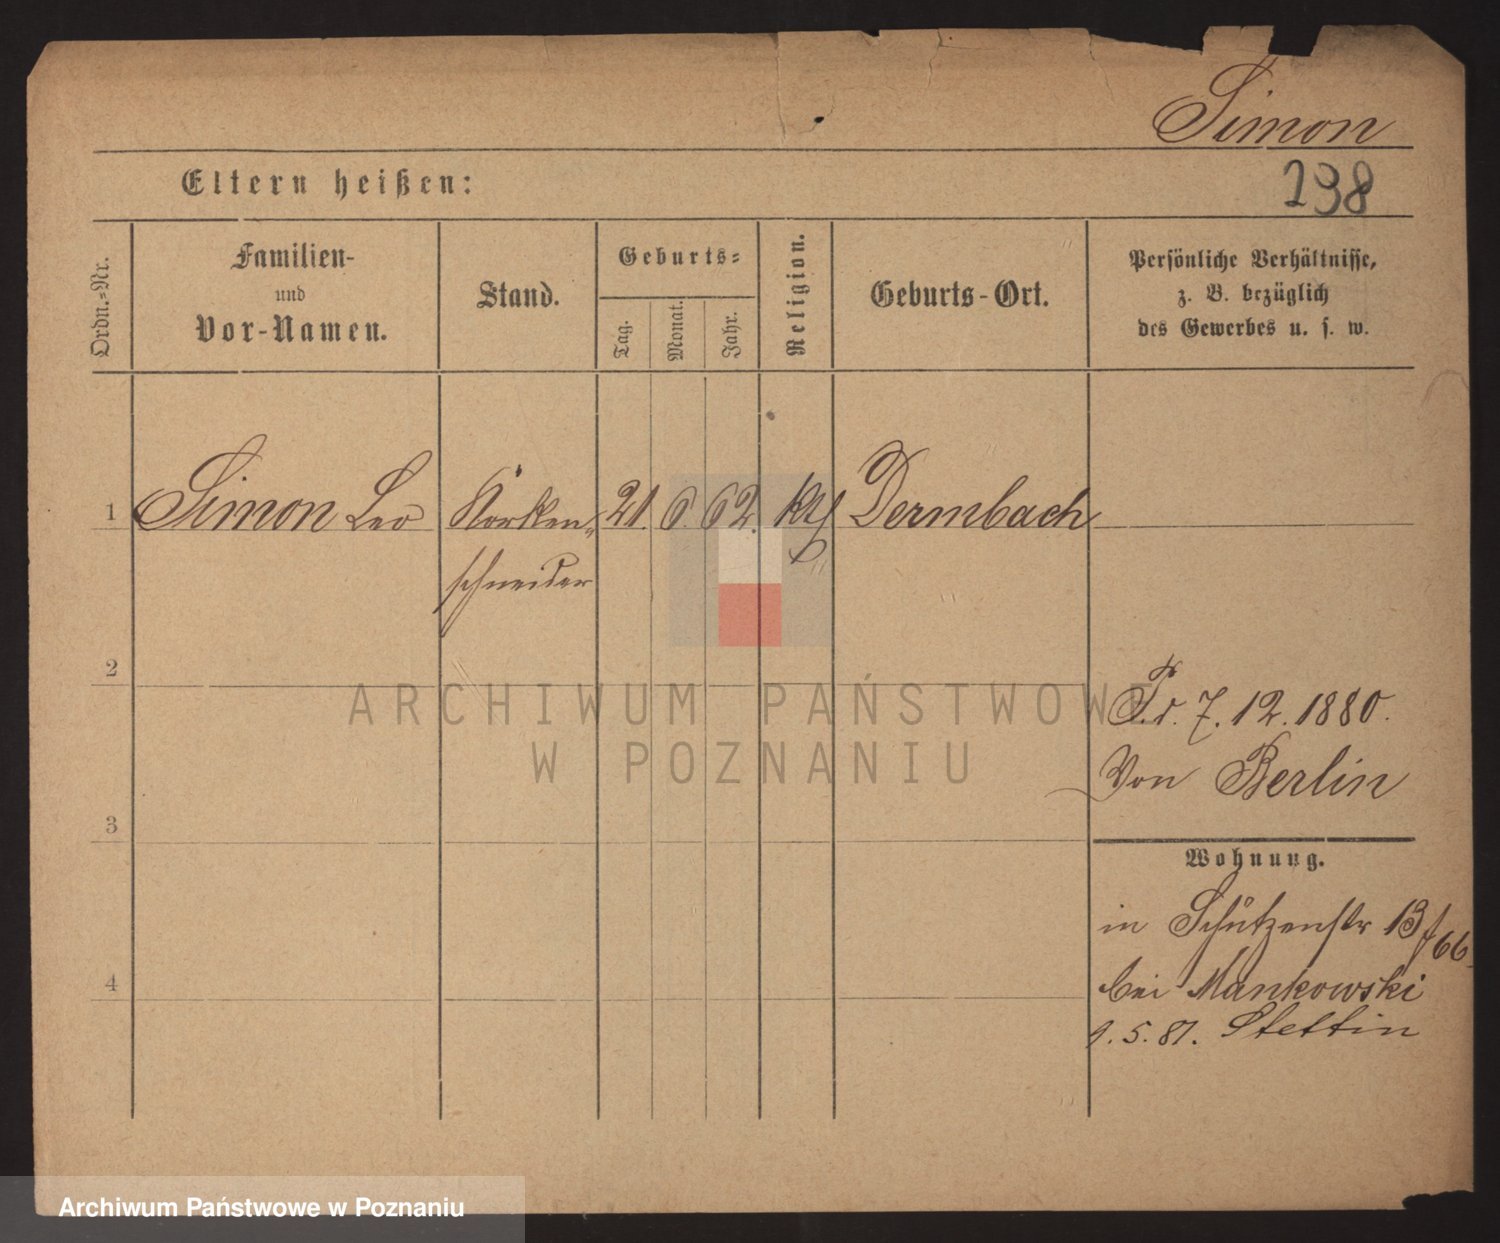 Simon
Eltern heißen:
238
Ordn.-Nr.
Familien-
und
Vor-Namen.
Stand.
Geburts-
Tag.
Monat.
Jahr.
Religion.
Geburts-Ort.
Persönliche Verhältnisse,
z. B. bezüglich
des Gewerbes u. s. w.
1 Simon Leo Korken- 21. 6. 62. kth Dermbach
schneider
2
P. d. 7. 12. 1880.
Von Berlin
3
Wohnung.
in Schützenstr 13/66
bei Mankowski
4
9. 5. 81. Stettin
ARCHIWUM PAŃSTWOWE
W POZNANIU
Archiwum Państwowe w Poznaniu